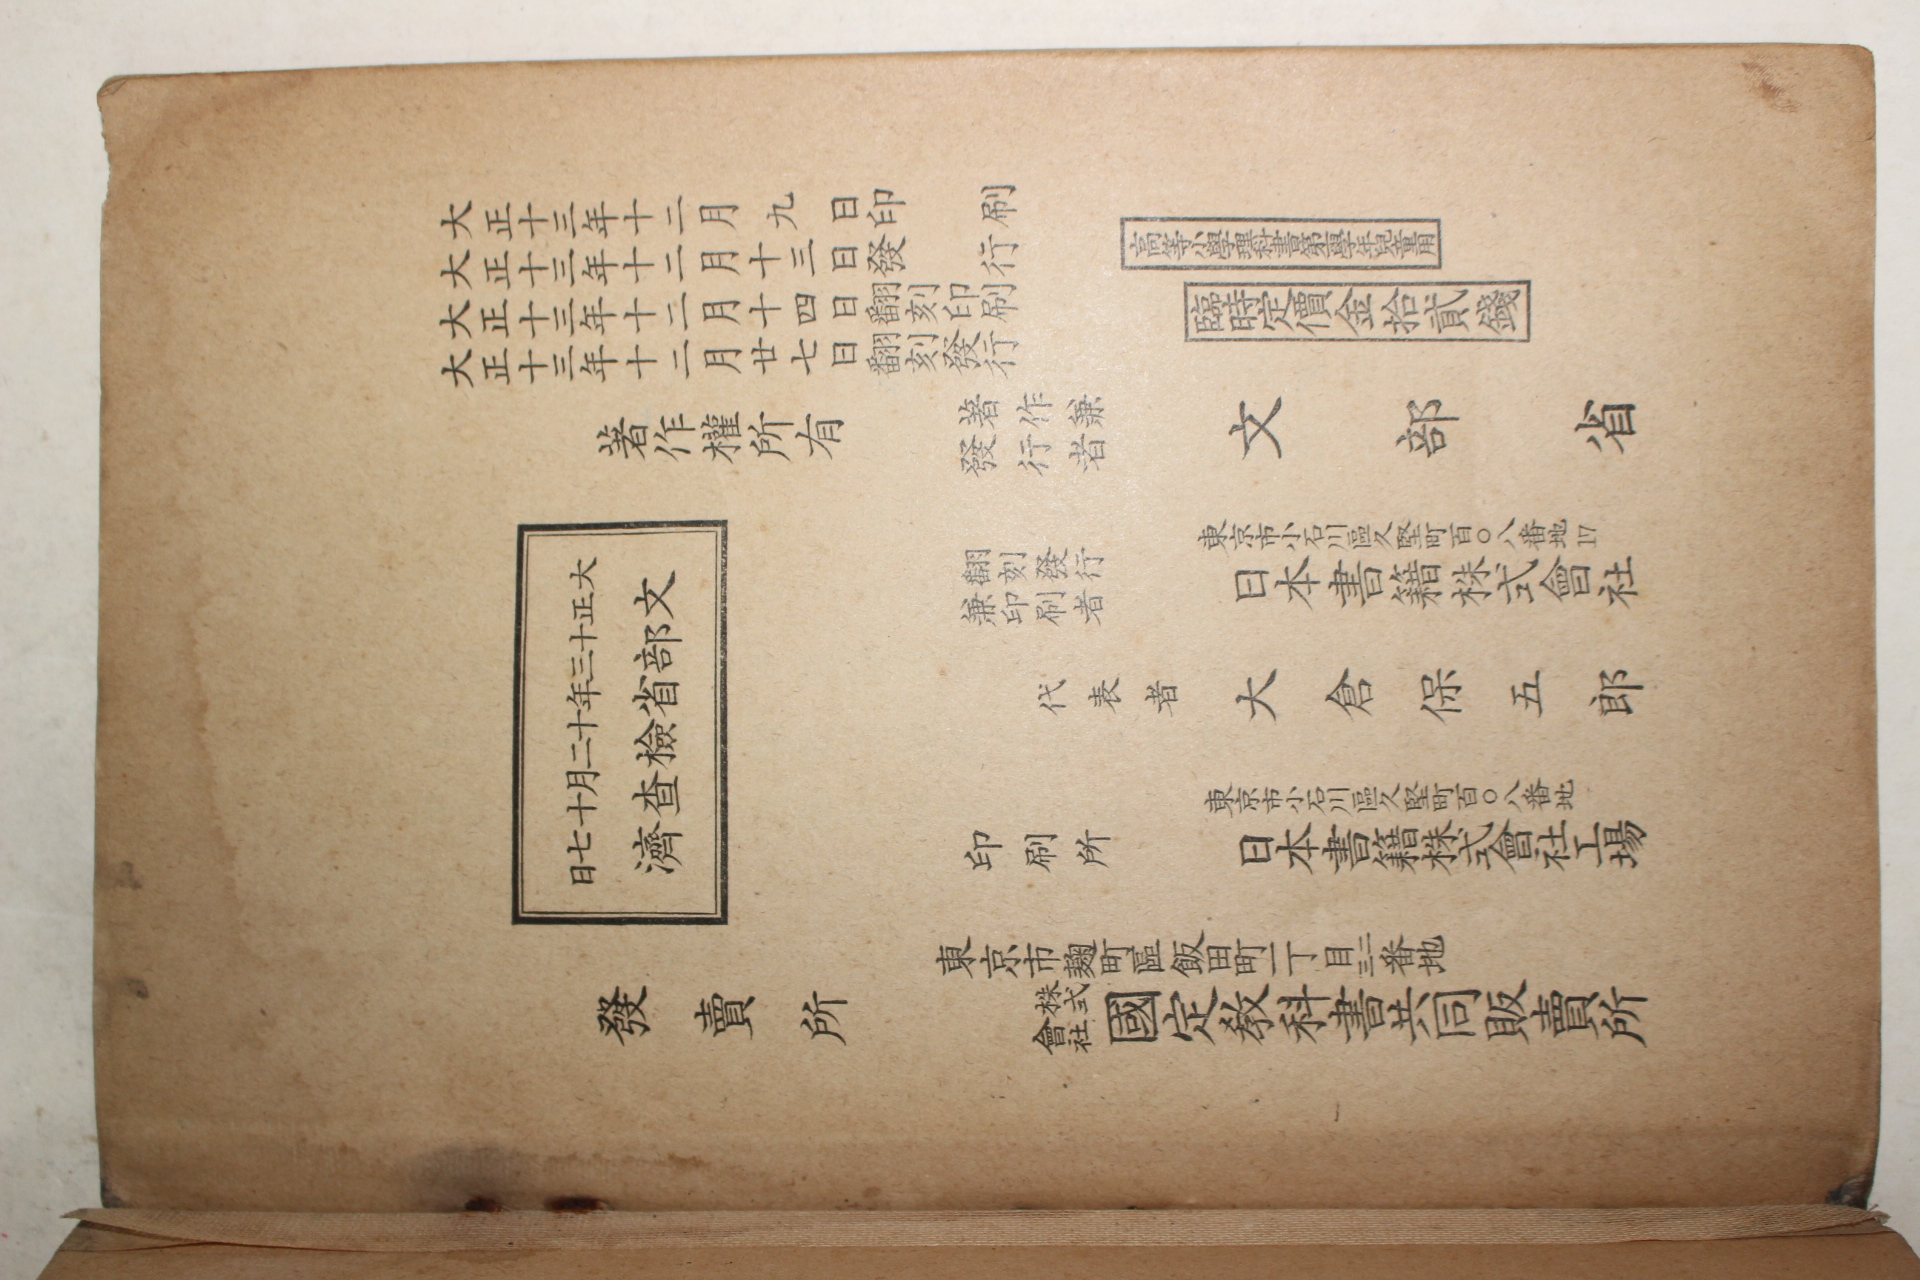 大正十三年十二月九日印刷
大正十三年十二月十三日發行
大正十三年十二月十四日翻刻印刷
大正十三年十二月廿七日翻刻發行
高等小學理科書第一學年兒童用
臨時定價金拾貳錢
著作權所有
著作兼
發行者
文部省
翻刻發行
兼印刷者
東京市小石川區久堅町百〇八番地
17
日本書籍株式會社
代表者
大倉保五郎
大正十三年十二月十七日
文部省檢查濟
印刷所
東京市小石川區久堅町百〇八番地
日本書籍株式會社工場
發賣所
東京市麹町區飯田町二丁目二番地
株式
會社
國定教科書共同販賣所